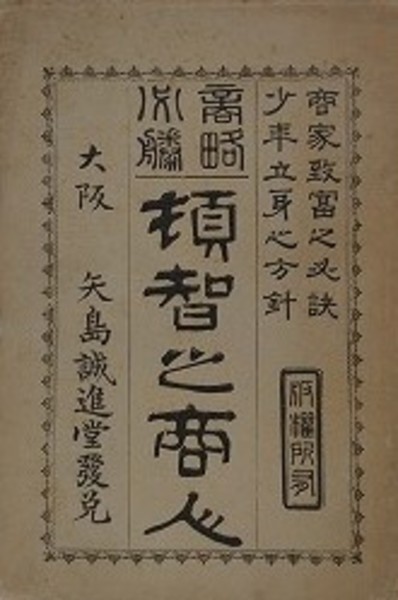 商家致富之必訣
少年立身之方針
版權所有
商略
必勝
頓智之商人
大阪 矢島誠進堂發兌